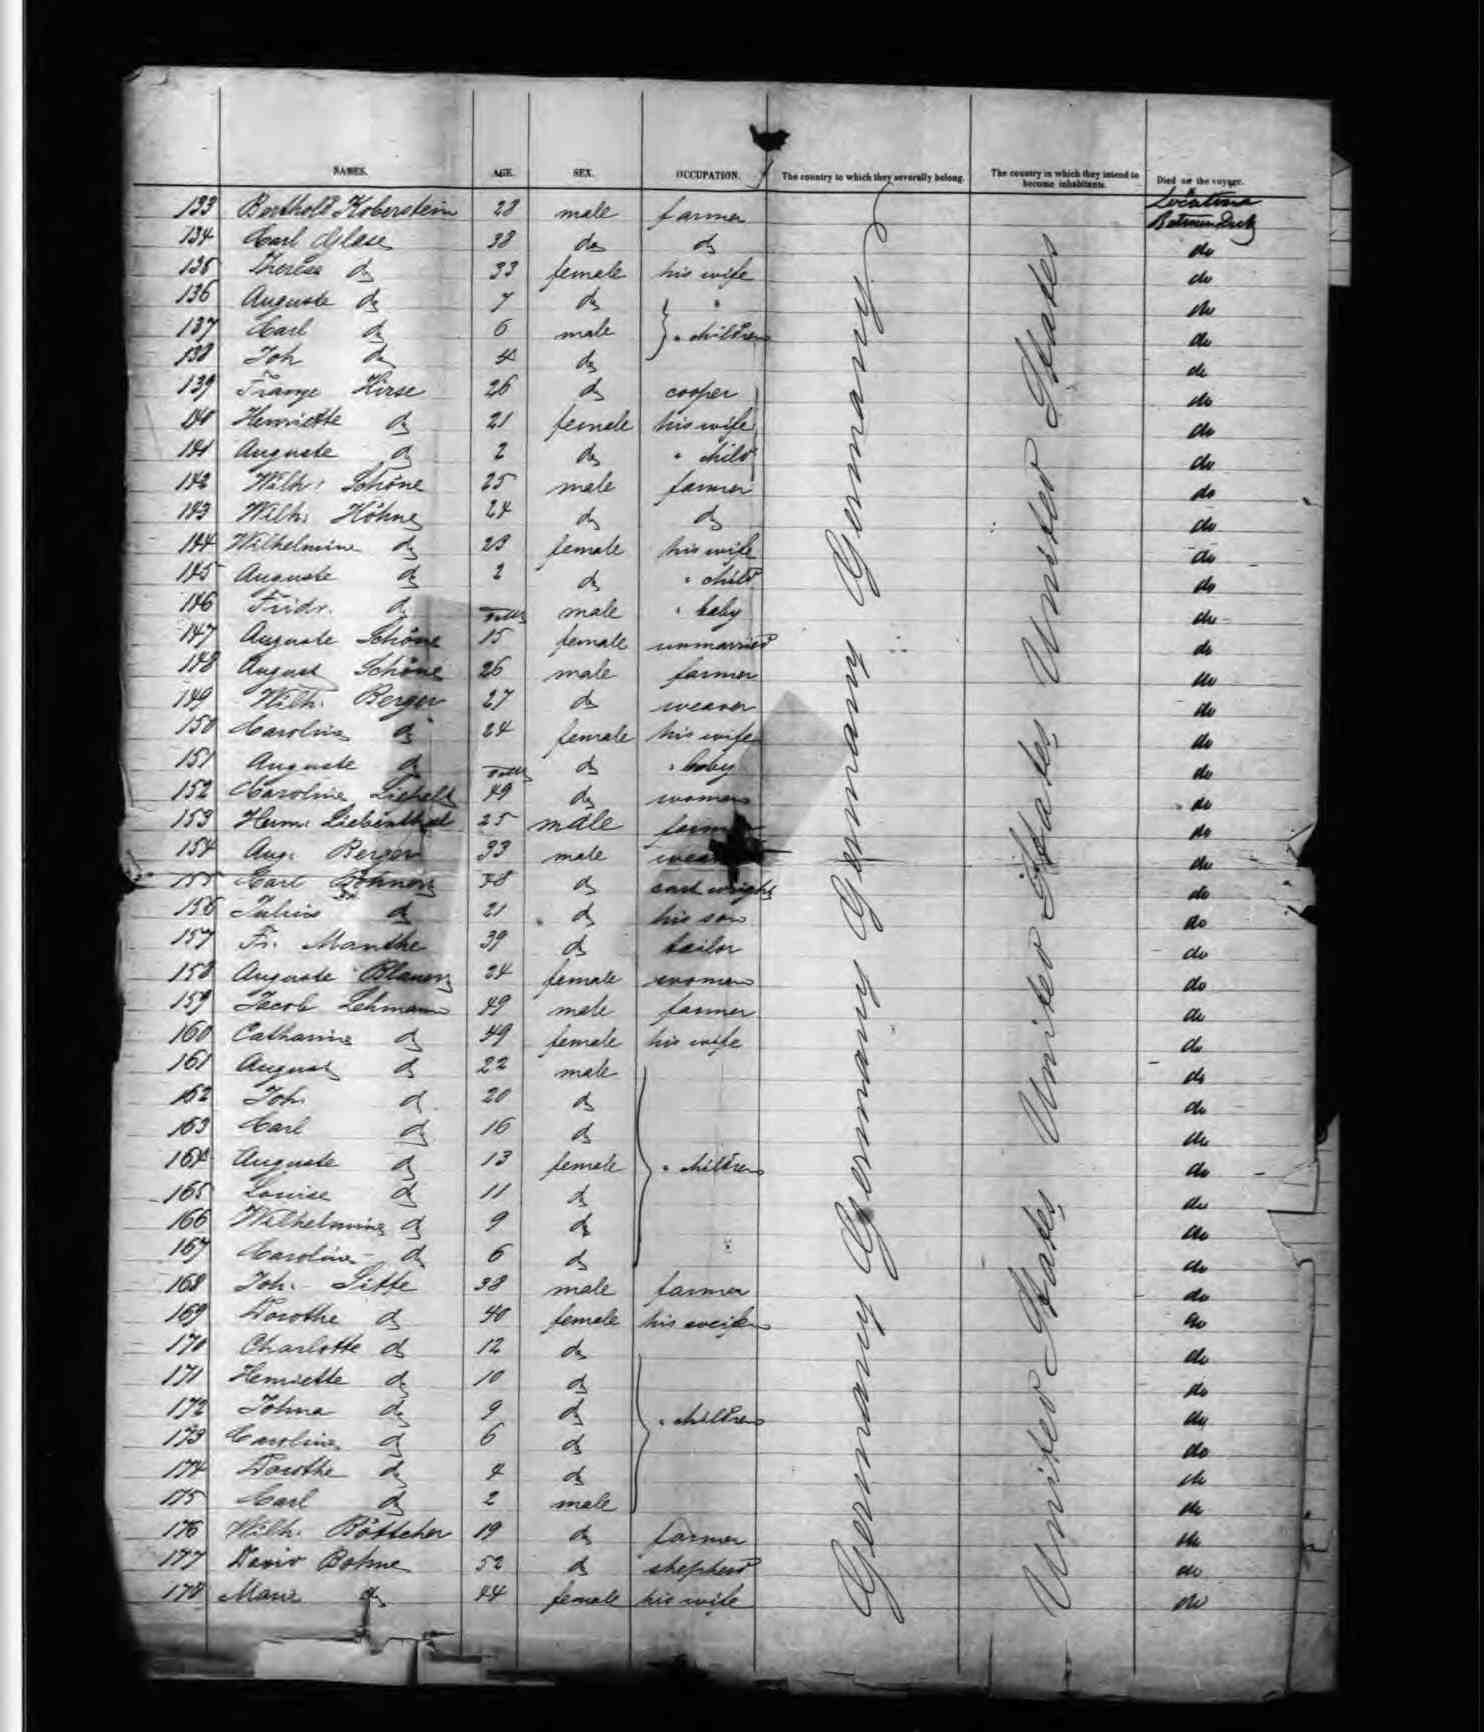 NAMES. AGE. SEX. OCCUPATION. The country to which they severally belong. The country in which they intend to become inhabitants. Died on the voyage.
Location
Between Deck
133 Berthold Koberstein 28 male farmer
134 Carl Glase 38 do do do
135 Therese do 33 female his wife do
136 Auguste do 7 do " do
137 Carl do 6 male " children do
138 Joh do 4 do do
139 Franz Hirse 26 do cooper do
140 Henriette do 21 female his wife do
141 Auguste do 2 do " child do
142 Wilh. Schöne 25 male farmer do
143 Wilh. Höhne 24 do do do
144 Wilhelmine do 23 female his wife do
145 Auguste do 2 do " child do
146 Fridr. do male " baby do
147 Auguste Schöne 15 female unmarried do
148 August Schöne 26 male farmer do
149 Wilh. Berger 27 do weaver do
150 Caroline do 24 female his wife do
151 Auguste do do " baby do
152 Caroline Liepelt 49 do woman do
153 Herm. Liebenthal 25 male farmer do
154 Aug. Berger 33 male do
155 Carl 48 do cart wright do
156 Julius do 21 do his son do
157 Fr. Manthe 39 do tailor do
158 Auguste 24 female woman do
159 Jacob Lehmann 49 male farmer do
160 Catharine do 49 female his wife do
161 August do 22 male do
162 Joh. do 20 do do
163 Carl do 16 do do
164 Auguste do 13 female " children do
165 Louise do 11 do do
166 Wilhelmine do 9 do do
167 Caroline do 6 do do
168 Joh. Litte 38 male farmer do
169 Dorothe do 40 female his weife do
170 Charlotte do 12 do do
171 Henriette do 10 do do
172 Johna do 9 do " children do
173 Caroline do 6 do do
174 Dorothe do 4 do do
175 Carl do 2 male do
176 Wilh. Böttcher 19 do farmer do
177 David Bohne 52 do shepherd do
178 Marie do 44 female his wife do
Germany Germany Germany Germany Germany
United States United States United States